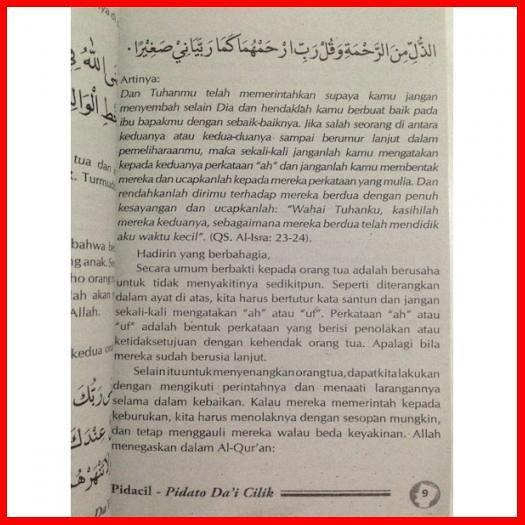 الذُّلِّ مِنَ الرَّحْمَةِ وَقُلْ رَبِّ ارْحَمْهُمَا كَمَا رَبَّيَانِيْ صَغِيْرًا.
Artinya:
Dan Tuhanmu telah memerintahkan supaya kamu jangan
menyembah selain Dia dan hendaklah kamu berbuat baik pada
ibu bapakmu dengan sebaik-baiknya. Jika salah seorang di antara
keduanya atau kedua-duanya sampai berumur lanjut dalam
pemeliharaanmu, maka sekali-kali janganlah kamu mengatakan
kepada keduanya perkataan "ah" dan janganlah kamu membentak
mereka dan ucapkanlah kepada mereka perkataan yang mulia. Dan
rendahkanlah dirimu terhadap mereka berdua dengan penuh
kesayangan dan ucapkanlah: "Wahai Tuhanku, kasihilah
mereka keduanya, sebagaimana mereka berdua telah mendidik
aku waktu kecil". (QS. Al-Isra: 23-24).
Hadirin yang berbahagia,
Secara umum berbakti kepada orang tua adalah berusaha
untuk tidak menyakitinya sedikitpun. Seperti diterangkan
dalam ayat di atas, kita harus bertutur kata santun dan jangan
sekali-kali mengatakan "ah" atau "uf". Perkataan "ah" atau
"uf" adalah bentuk perkataan yang berisi penolakan atau
ketidaksetujuan dengan kehendak orang tua. Apalagi bila
mereka sudah berusia lanjut.
Selain itu untuk menyenangkan orang tua, dapat kita lakukan
dengan mengikuti perintahnya dan menaati larangannya
selama dalam kebaikan. Kalau mereka memerintah kepada
keburukan, kita harus menolaknya dengan sesopan mungkin,
dan tetap menggauli mereka walau beda keyakinan. Allah
menegaskan dalam Al-Qur'an:
Pidacil - Pidato Da'i Cilik 9